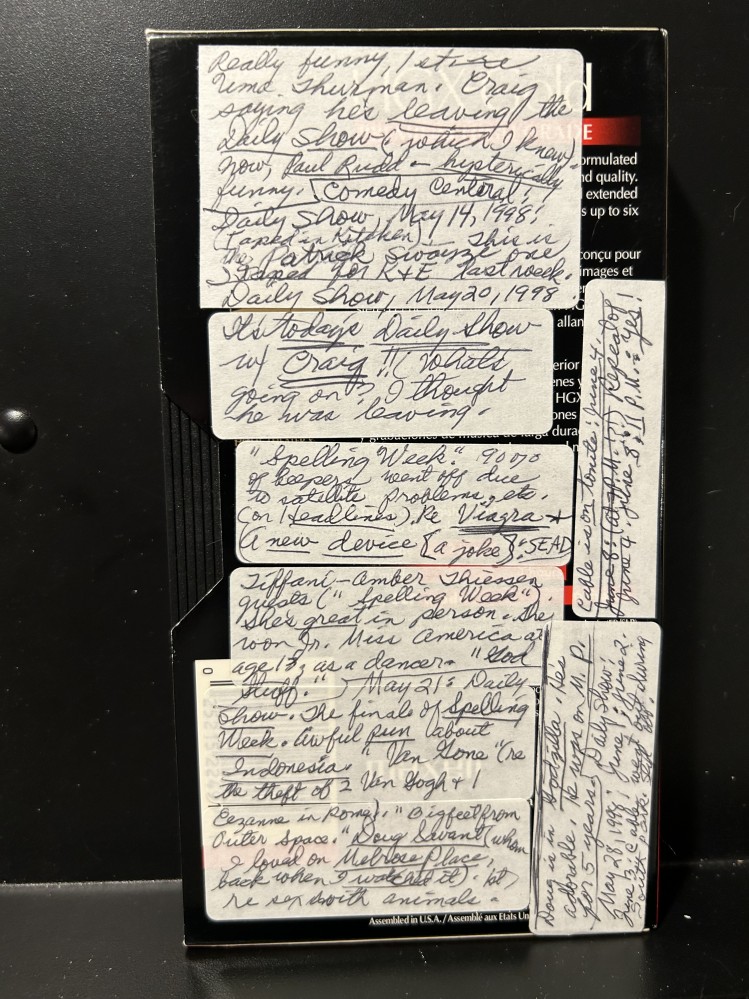 Really funny, 1 et re
Uma Thurman. Craig
saying he's leaving the
Daily Show (which I knew)
now, Paul Rudd - hysterically
funny. Comedy Central!
Daily Show, May 14, 1998!
(Taped in Kitchen) This is
the Patrick Swayze one
I taped for K+E last week.
Daily Show, May 20, 1998
It's today's Daily Show
w/ Craig!!! (What's
going on? I thought
he was leaving.
"Spelling Week." 90%
of beepers went off due
to satellite problems, etc.
(on Headlines), Re Viagra +
A new device {a joke}: SEAD
Tiffani-Amber Thiessen
guests ("Spelling Week").
She's great in person. She
won Jr. Miss America at
age 13, as a dancer. "God
Stuff." May 21: Daily
Show. The finale of Spelling
Week. Awful pun about
Indonesia. "Van Gone" (re
the theft of 2 Van Gogh + 1
Cezanne in Rome). "Bigfeet from
Outer Space." Doug Savant (whom
I loved on Melrose Place,
back when I watched it). lot
re sex with animals.
Doug is in Godzilla. He's
adorable. He was on M. P.
for 5 years. Daily Show:
May 28, 1998! June 1; June 2.
June 3; Cable went out during
South Park
Cable is on tonite: June 4.
June 8: (at 7 P.M.?) Repeat of
June 4. June 8: 11 P.M.: Yes!
HGX
ld
RADE
ormulated
nd quality.
extended
s up to six
conçu pour
images et
allan
erior
enes y
HGX
ones
y grabaciones de música de larga dura
maxell
Assembled in U.S.A. / Assemblé aux Etats Un